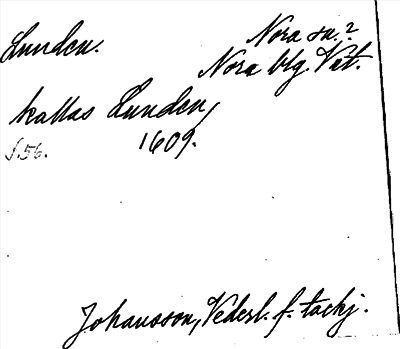 Lunden.
Nora sn.?
Nora blg. Vst.
kallas Lunden,
1609.
s. 56.
Johansson, Vederl. f. tackj.